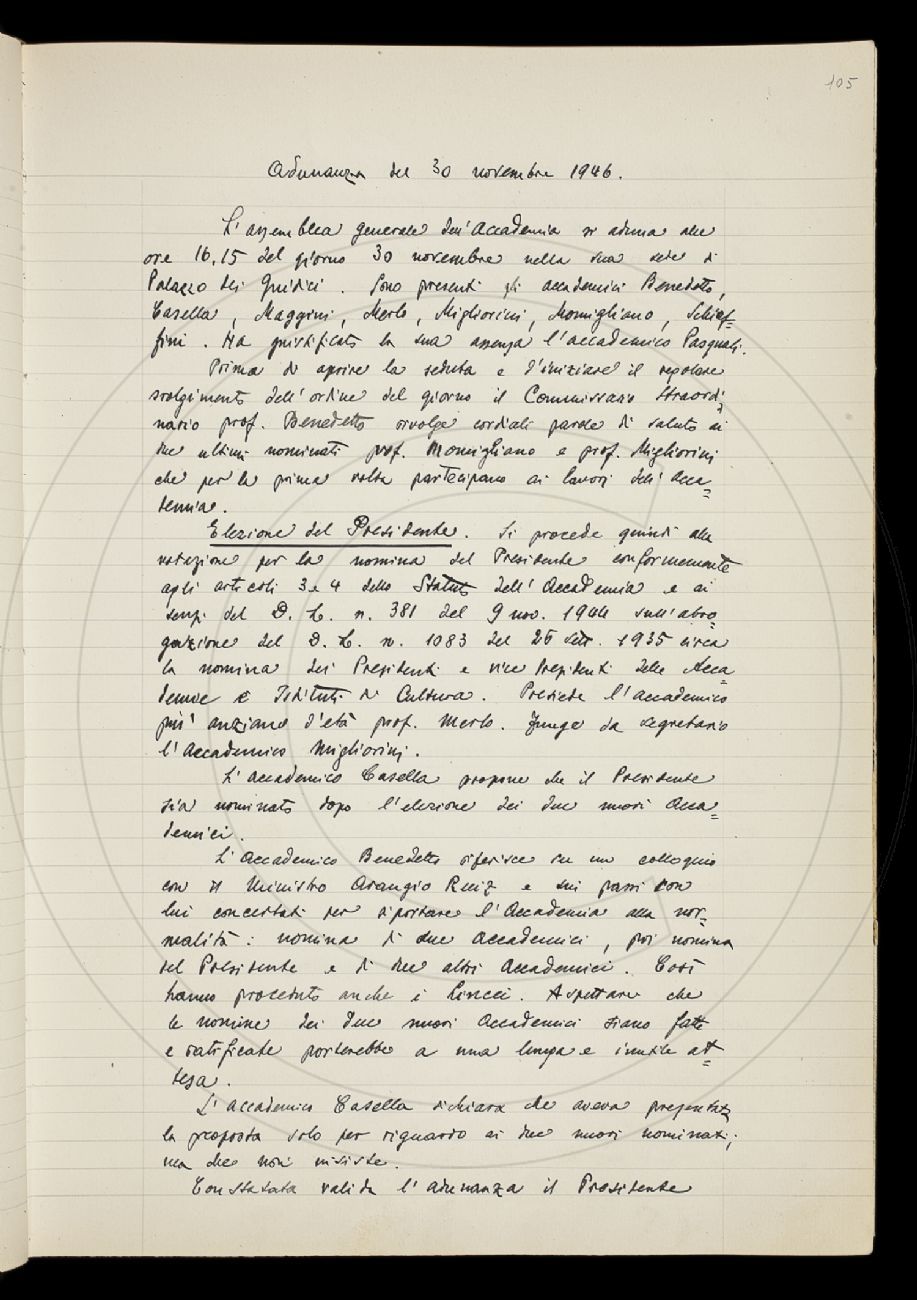 105
Adunanza del 30 novembre 1946.
L'assemblea generale dell'Accademia si aduna alle
ore 16,15 del giorno 30 novembre nella sua sede di
Palazzo dei Giudici. Sono presenti gli accademici Benedetto,
Casella, Maggini, Merlo, Migliorini, Momigliano, Schiaf=
fini. Ha giustificato la sua assenza l'accademico Pasquali.
Prima di aprire la seduta e d'iniziare il regolare
svolgimento dell'ordine del giorno il Commissario Straordi=
nario prof. Benedetto rivolge cordiali parole di saluto ai
due ultimi nominati prof. Momigliano e prof. Migliorini
che per la prima volta partecipano ai lavori dell'Acca=
demia.
Elezione del Presidente. Si procede quindi alla
votazione per la nomina del Presidente conformemente
agli articoli 3 e 4 dello Statuto dell'Accademia e ai
sensi del D. L. n. 381 del 9 nov. 1944 sull'abro=
gazione del D. L. n. 1083 del 26 sett. 1935 circa
la nomina dei Presidenti e vice Presidenti delle Acca
demie e Istituti di Cultura. Presiede l'accademico
più anziano d'età prof. Merlo. Funge da segretario
l'Accademico Migliorini.
L'accademico Casella propone che il Presidente
sia nominato dopo l'elezione dei due nuovi Acca=
demici.
L'Accademico Benedetto riferisce su un colloquio
con il Ministro Arangio Ruiz e sui passi con
lui concertati per riportare l'Accademia alla nor=
malità: nomina di due Accademici, poi nomina
del Presidente e di due altri Accademici. Così
hanno proceduto anche i Lincei. Aspettare che
le nomine dei due nuovi Accademici siano fatte
e ratificate porterebbe a una lunga e inutile at=
tesa.
L'accademico Casella dichiara che aveva presentato
la proposta solo per riguardo ai due nuovi nominati;
ma che non insiste.
Constatata valida l'adunanza il Presidente